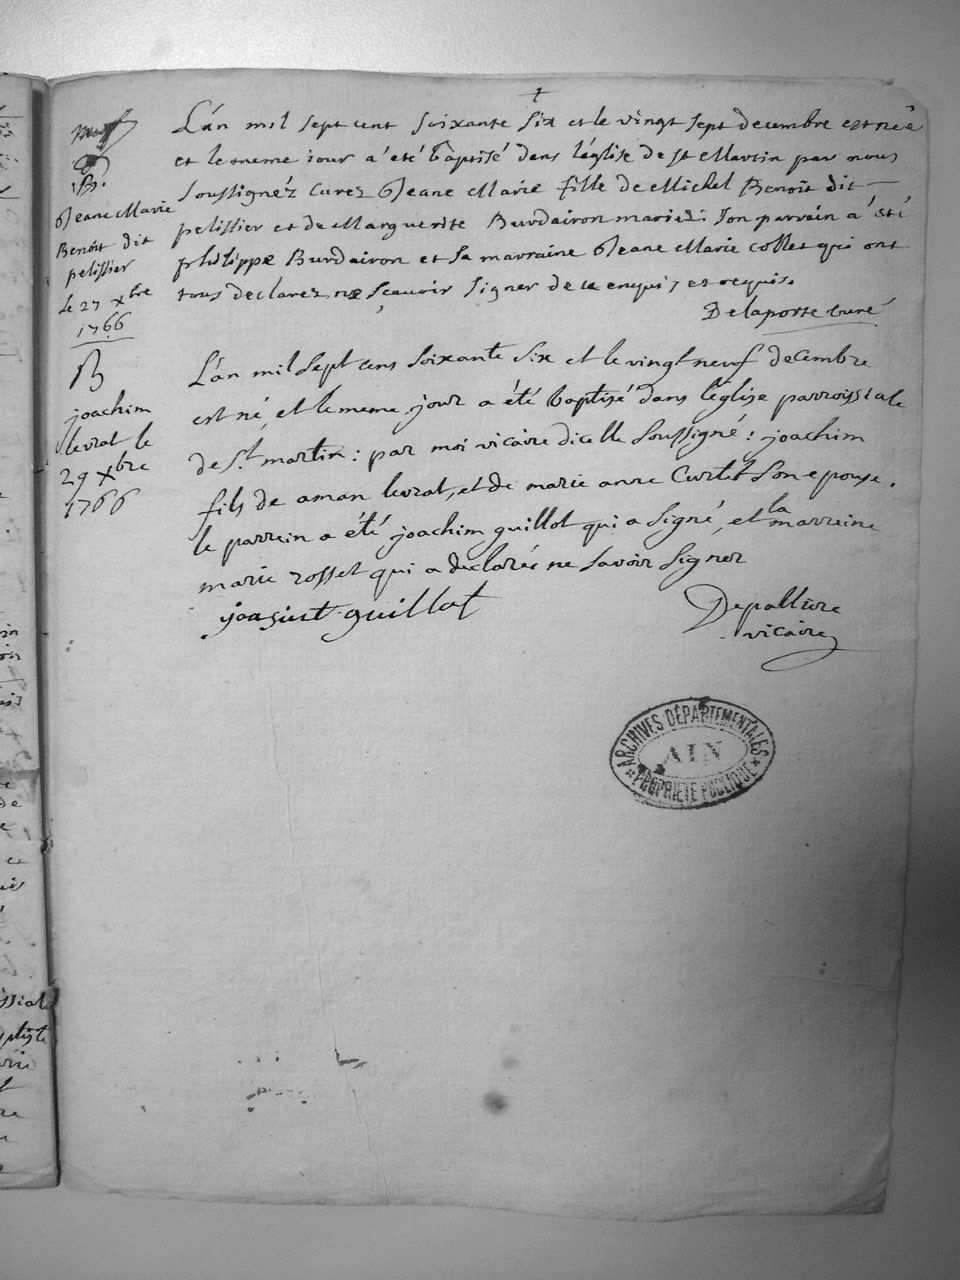 B.
Jeane Marie
Benoit dit
pelissier
le 27 xbre
1766
L'an mil sept cent soixante six et le vingt sept decembre est née
et le meme iour a été baptisé dens l'église de st Martin par nous
soussignéz curez Jeane Marie fille de Michel Benoit dit
pelissier et de Marguerite Burdairon mariés: son parrain a été
philippe Burdairon et sa marraine Jeane Marie collet qui ont
tous declarez ne sçauoir signer de ce enquis et requis.
Delaporte curé
B
joachim
levrat le
29 xbre
1766
L'an mil sept cens soixante six et le vingt neuf decembre
est né, et le meme jour a été baptisé dans l'église parroissiale
de St. martin: par moi vicaire dicelle soussigné: joachim
fils de aman levrat, et de marie anne Curtet son epouse.
le parrein a été joachim guillot qui a signé, et la marreine
marie rosset qui a declarée ne savoir signer
guillot
Depalliere
vicaire
ARCHIVES DÉPARTEMENTALES
AIN
PROPRIÉTÉ PUBLIQUE